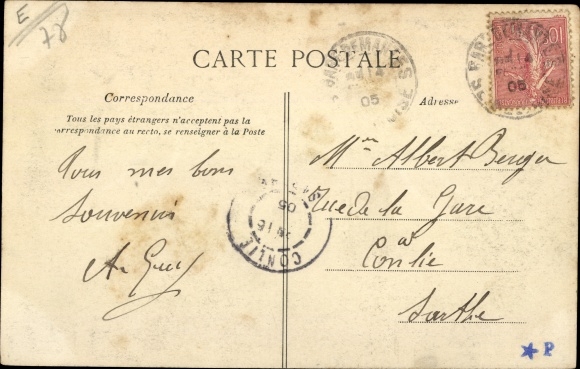 E
78
CARTE POSTALE
Correspondance
Tous les pays étrangers n'acceptent pas la
correspondance au recto, se renseigner à la Poste
Adresse
Tous mes bons
souvenirs
Mr Albert
Rue de la Gare
à
Conlie
Sarthe
CONLIE
16
05
10
05
OISE
★ P